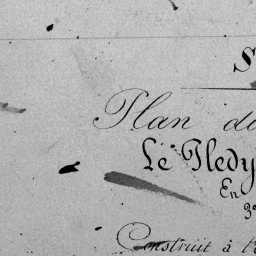 S
Plan du
Le Pledy
En
Construit à l'é